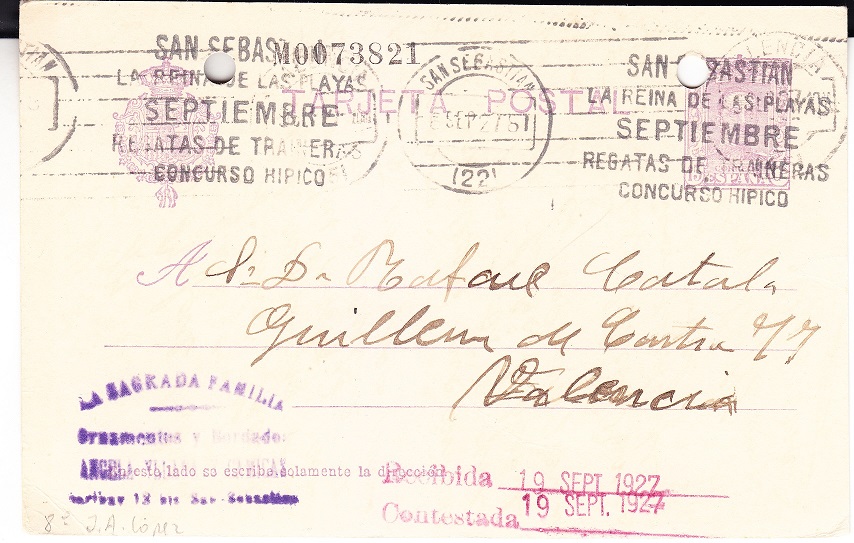 M0073821
SAN SEBASTIAN
LA REINA DE LAS PLAYAS
SEPTIEMBRE
REGATAS DE TRAINERAS
CONCURSO HIPICO
SAN SEBASTIAN
SEP 27
(22)
SAN SEBASTIAN
LA REINA DE LAS PLAYAS
SEPTIEMBRE
REGATAS DE TRAINERAS
CONCURSO HIPICO
VALENCIA
TARJETA POSTAL
ESPAÑA
A Sr. Dn Rafael Catala
Guillem de Castro 77
Valencia
LA SAGRADA FAMILIA
Ornamentos y Bordados
ANGELA
Garibay 12 bis San Sebastian
En este lado se escribe solamente la dirección
Recibida 19 SEPT. 1927
Contestada 19 SEPT. 1927
8º J.A. López